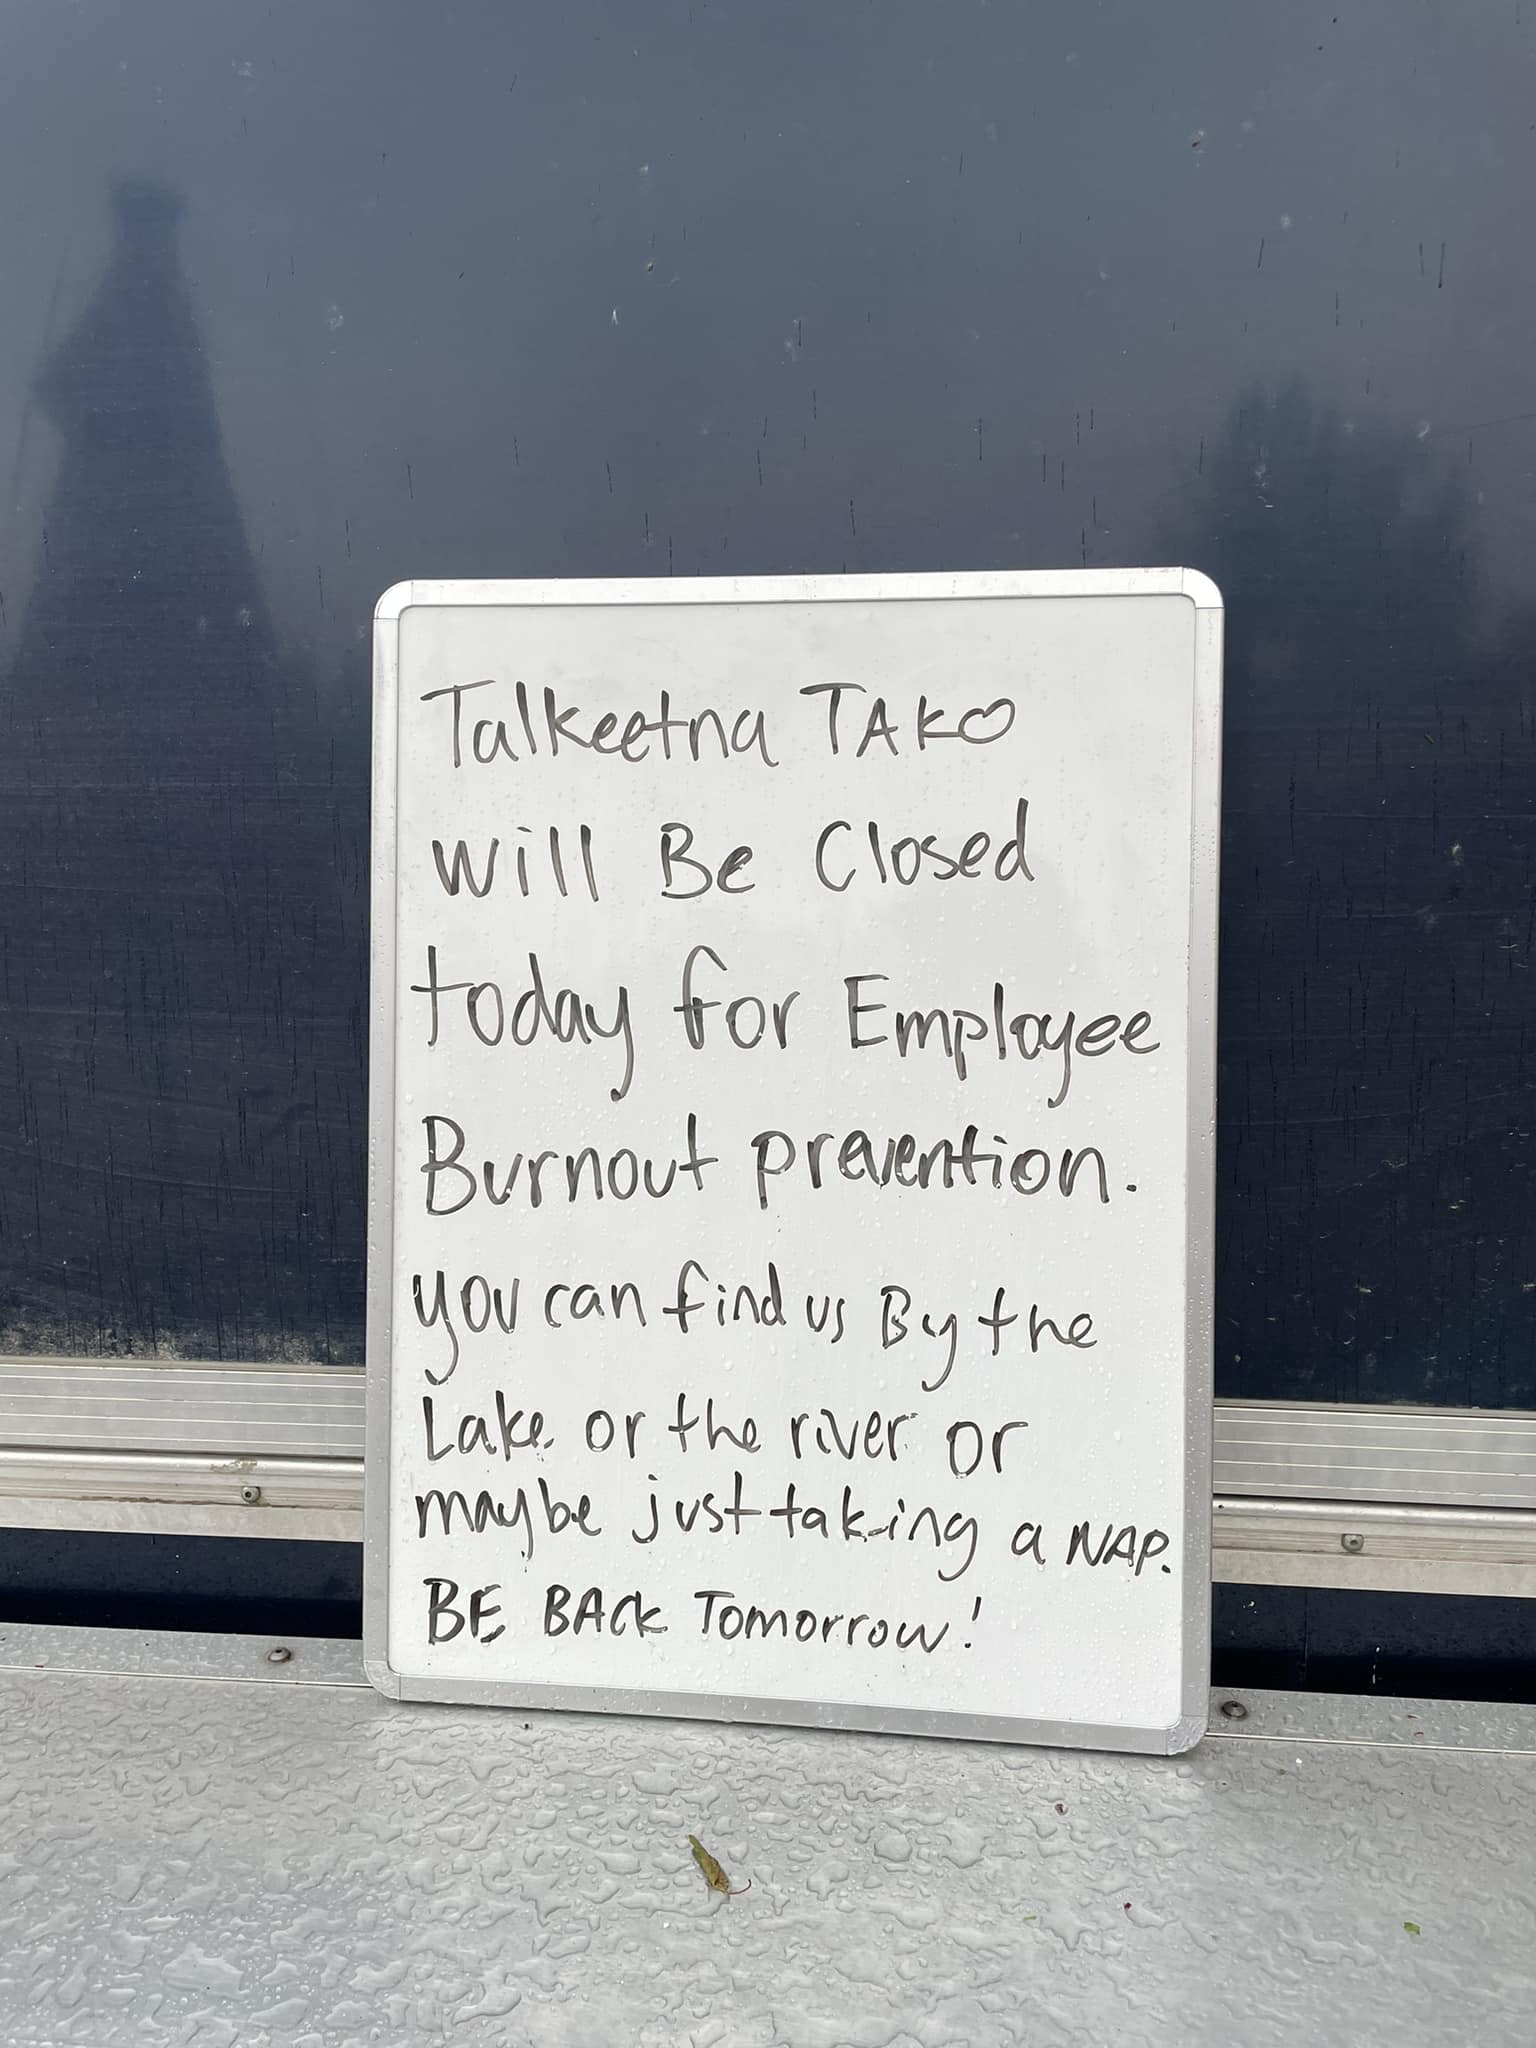 Talkeetna TAKO
will Be Closed
today for Employee
Burnout prevention.
you can find us By the
Lake or the river or
maybe just taking a NAP.
BE BACK Tomorrow!